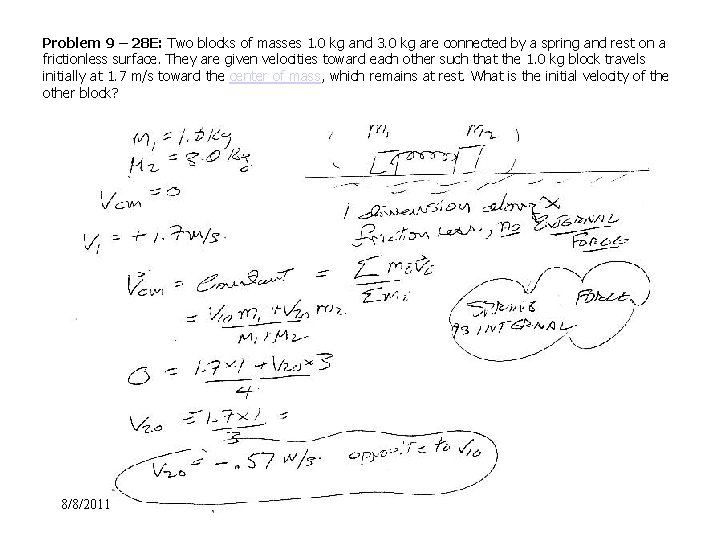 Problem 9 – 28E: Two blocks of masses 1.0 kg and 3.0 kg are connected by a spring and rest on a
frictionless surface. They are given velocities toward each other such that the 1.0 kg block travels
initially at 1.7 m/s toward the center of mass, which remains at rest. What is the initial velocity of the
other block?
M₁ = 1.0 kg
M₂ = 3.0 kg
M₁ M₂
Vcm = 0
V₁ = + 1.7 m/s.
1 dimension along x
Friction less, no EXTERNAL
FORCE
Vcm = Constant = Σ mᵢvᵢ / Σ mᵢ
= V₁₀ m₁ + V₂₀ m₂ / M₁ + M₂
SPRING FORCE
AS INTERNAL
0 = 1.7 x 1 + V₂₀ x 3 / 4
V₂₀ = -1.7 x 1 / 3 =
V₂₀ = - .57 m/s. opposite to V₁₀
8/8/2011